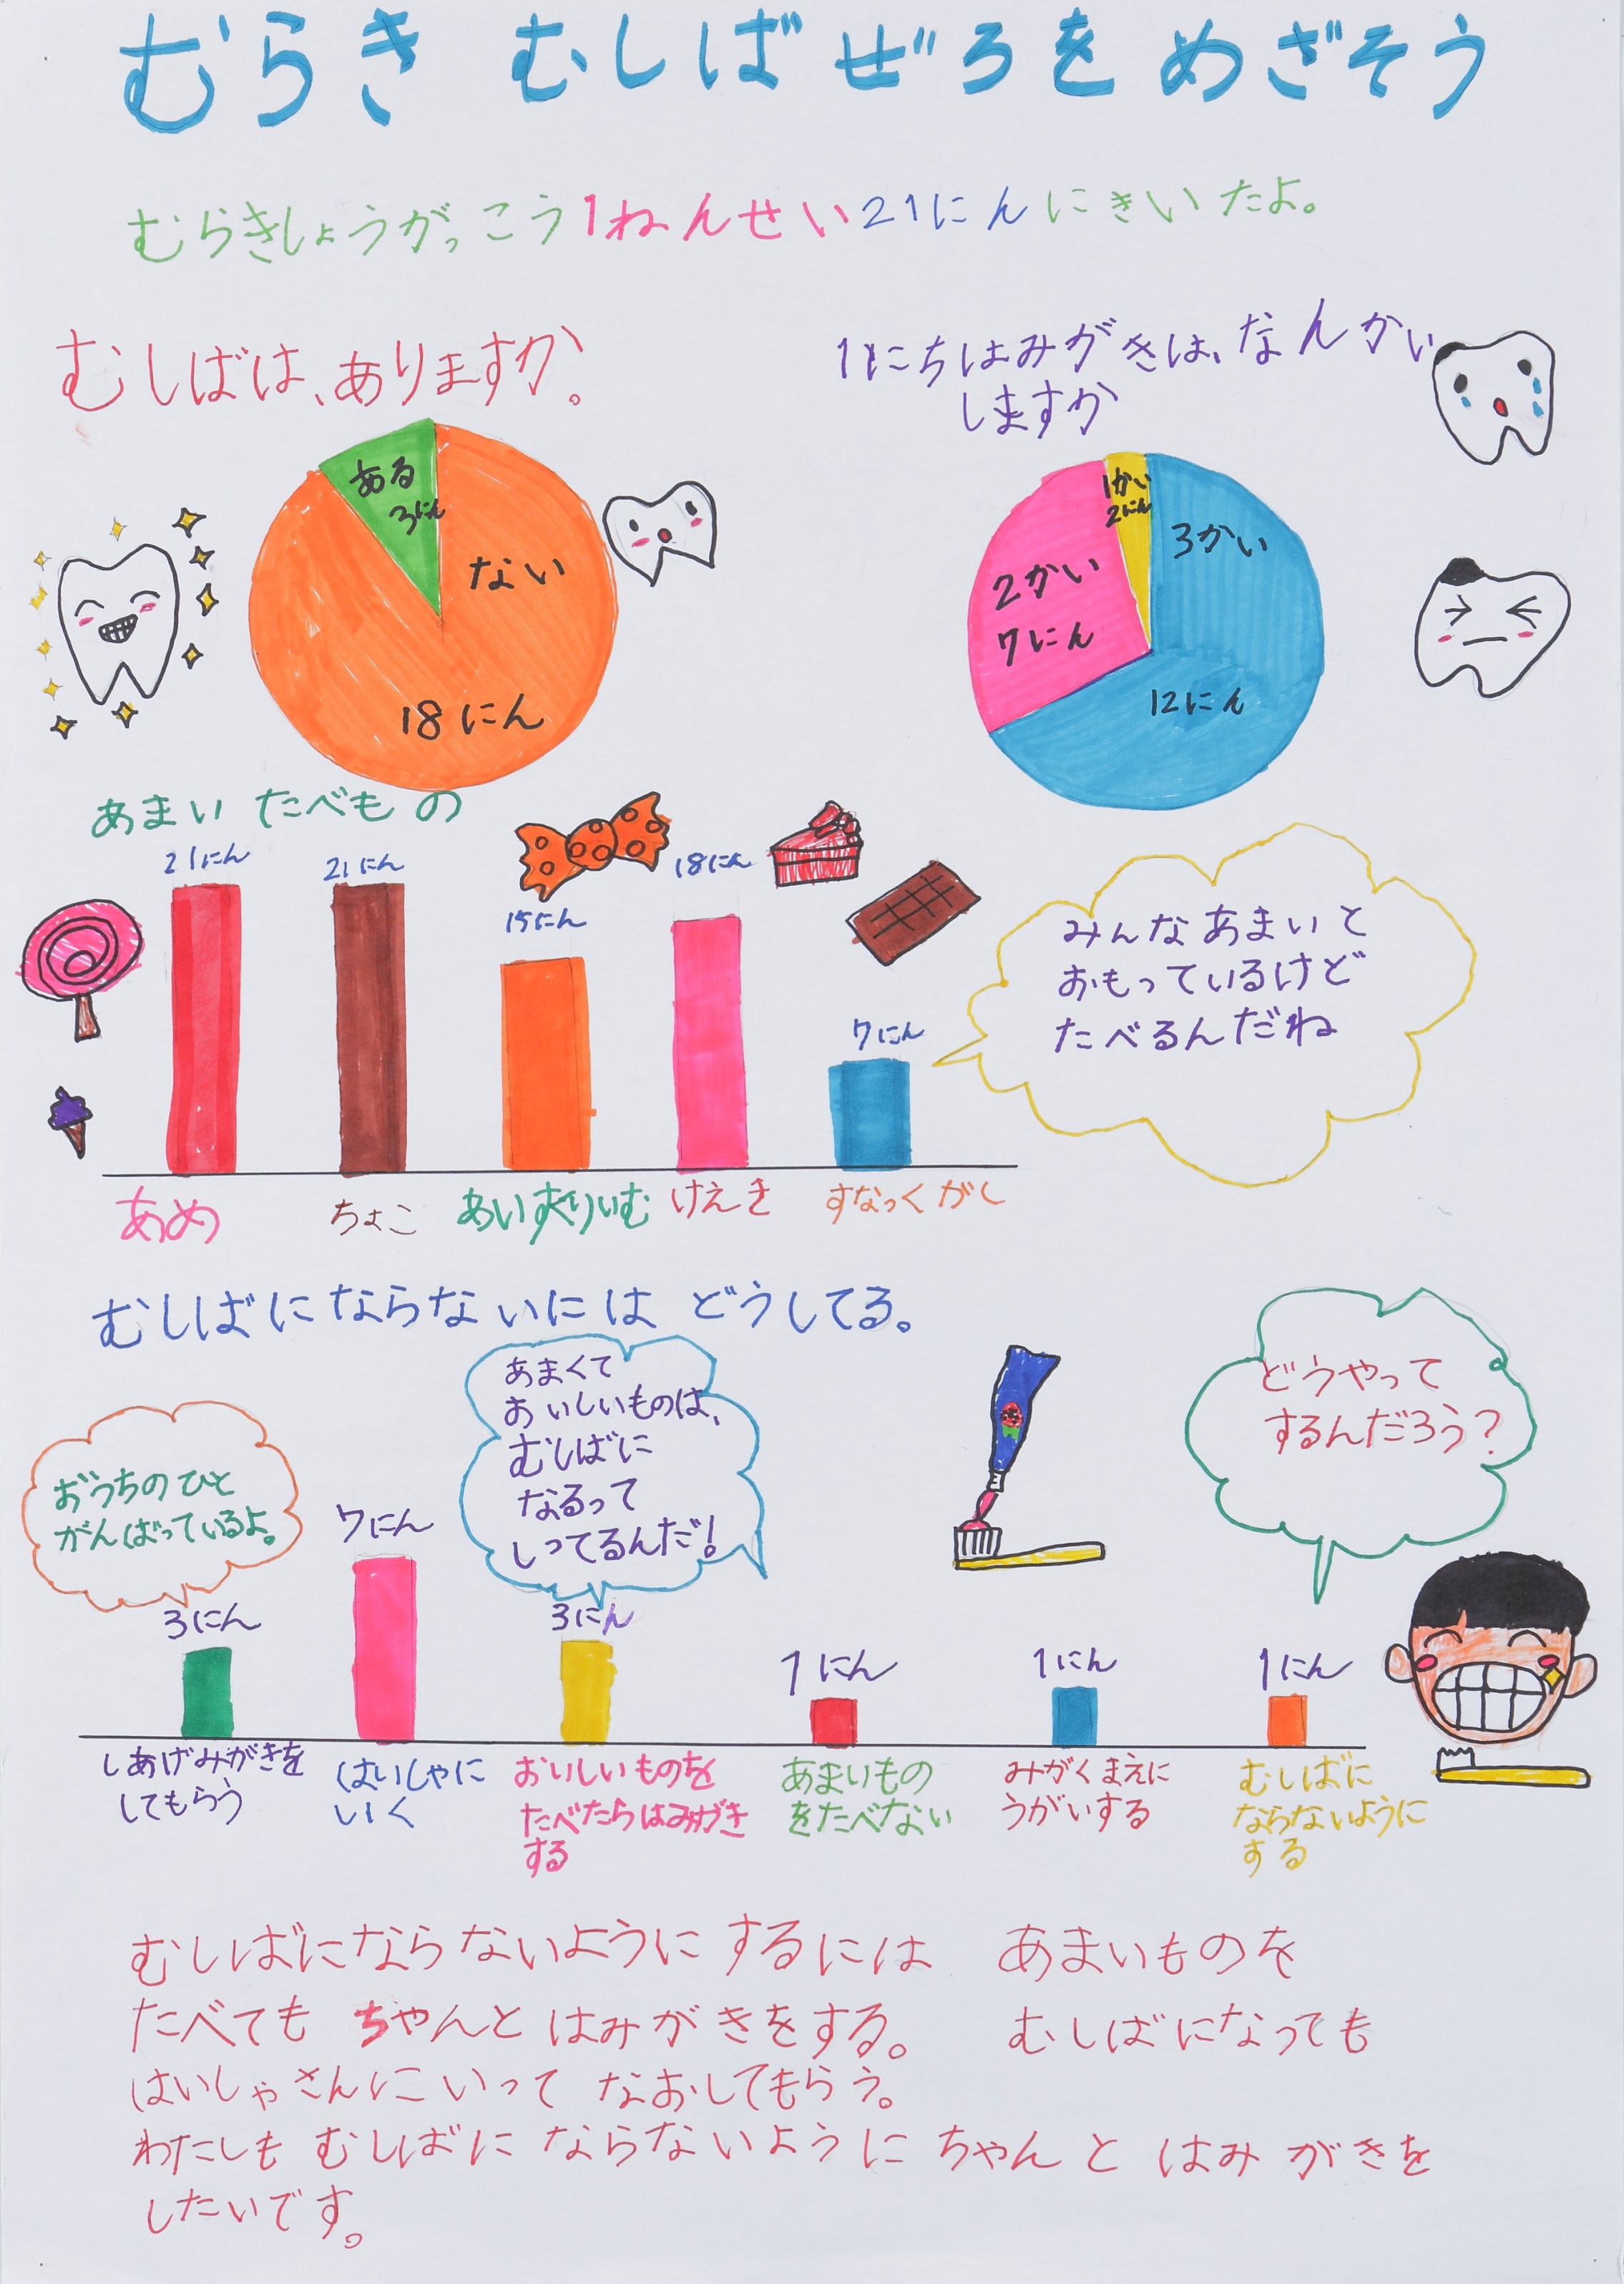 むらき むしばぜろを めざそう
むらきしょうがっこう1ねんせい21にんにきいたよ。
むしばは、ありますか。
ある
3にん
ない
18にん
1にちはみがきは、なんかい
しますか
1かい
2にん
3かい
2かい
7にん
12にん
あまい たべもの
21にん
21にん
15にん
18にん
7にん
みんなあまいと
おもっているけど
たべるんだね
あめ
ちょこ
あいすくりいむ
けえき
すなっくがし
むしばにならないには どうしてる。
おうちのひと
がんばっているよ。
あまくて
おいしいものは、
むしばに
なるって
しってるんだ!
どうやって
するんだろう?
3にん
7にん
3にん
1にん
1にん
1にん
しあげみがきを
してもらう
はいしゃに
いく
おいしいものを
たべたらはみがき
する
あまいもの
をたべない
みがくまえに
うがいする
むしばに
ならないように
する
むしばにならないようにするには あまいものを
たべても ちゃんと はみがきをする。 むしばになっても
はいしゃさんにいって なおしてもらう。
わたしも むしばに ならないように ちゃんと はみがきを
したいです。